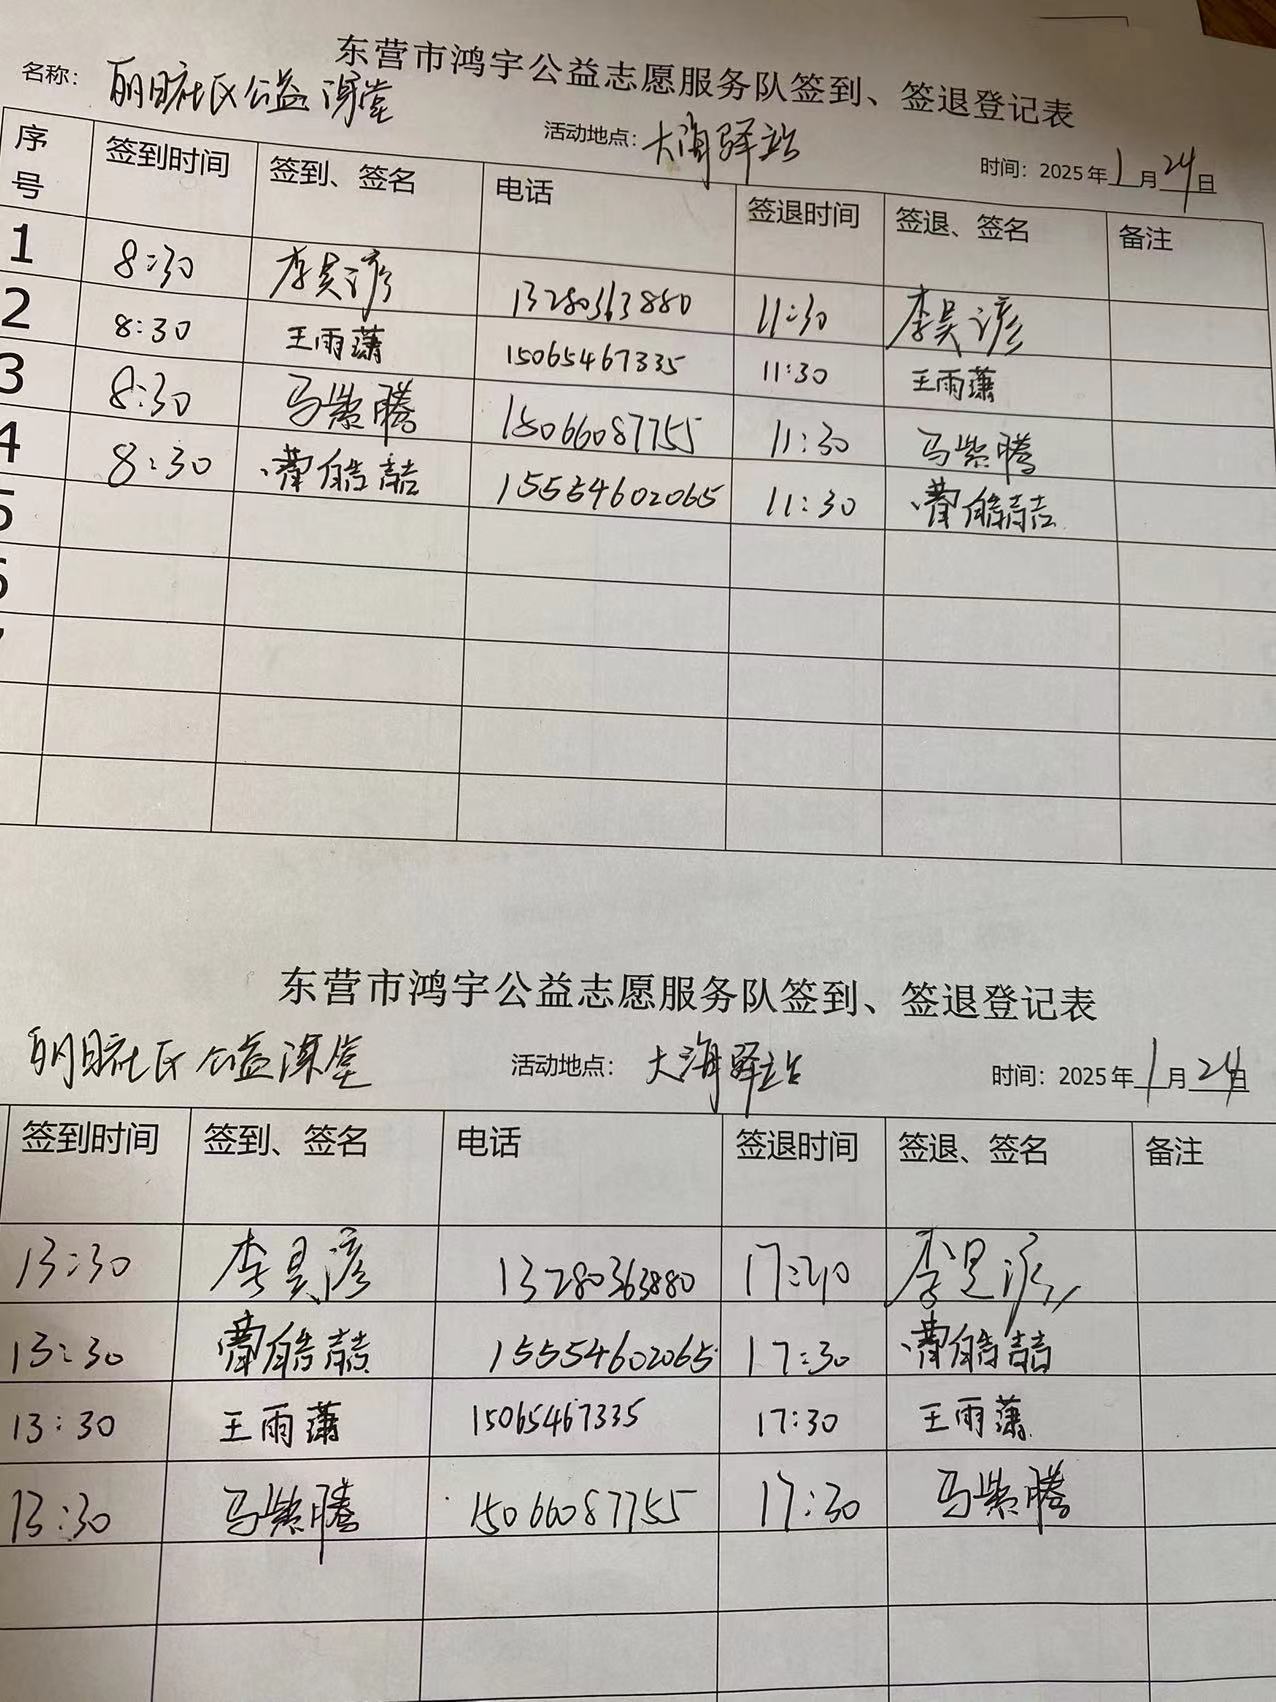 东营市鸿宇公益志愿服务队签到、签退登记表
名称: 丽日社区公益课堂 活动地点: 大海驿站 时间: 2025年1月24日
序号 签到时间 签到、签名 电话 签退时间 签退、签名 备注
1 8:30 李昊谚 13280363880 11:30 李昊谚
2 8:30 王雨潇 15065467335 11:30 王雨潇
3 8:30 马紫腾 15066087755 11:30 马紫腾
4 8:30 皓喆 15554602065 11:30 皓喆
5
6
东营市鸿宇公益志愿服务队签到、签退登记表
丽日社区公益课堂 活动地点: 大海驿站 时间: 2025年1月24日
签到时间 签到、签名 电话 签退时间 签退、签名 备注
13:30 李昊谚 13280363880 17:30 李昊谚
13:30 皓喆 15554602065 17:30 皓喆
13:30 王雨潇 15065467335 17:30 王雨潇
13:30 马紫腾 15066087755 17:30 马紫腾